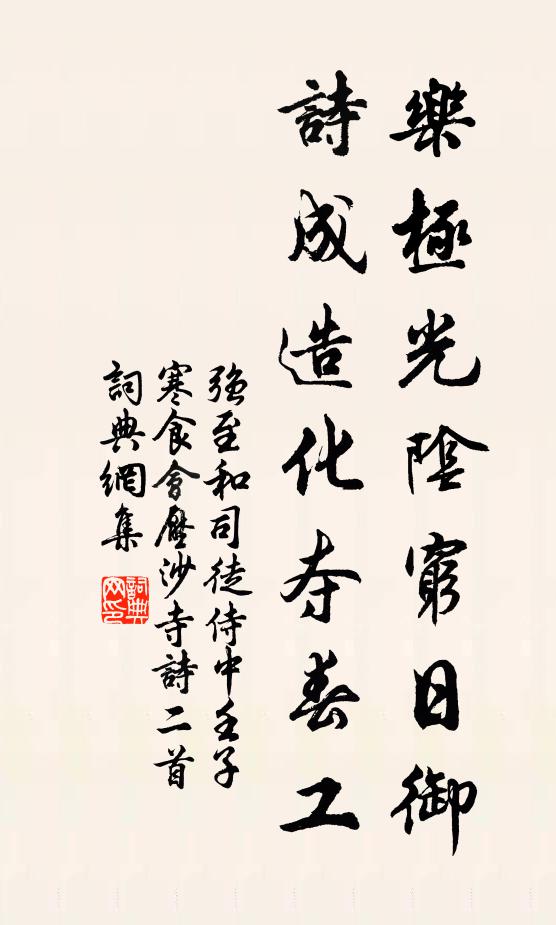 樂極光陰窮日御
詩成造化夺春工
強至和司徒侍中壬子
寒食會壓沙寺詩二首
詞典網集
詞典
网印